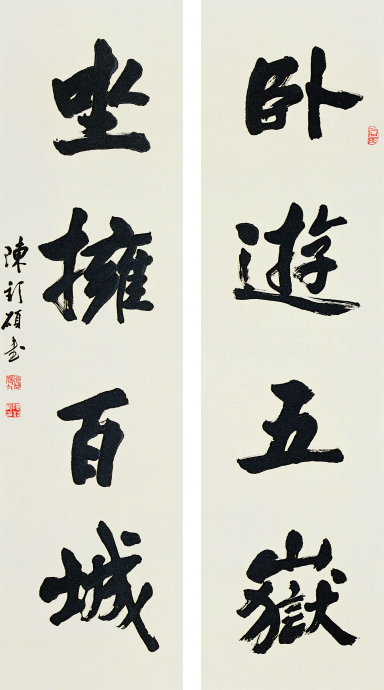 卧遊五嶽
坐擁百城
陳
碩書